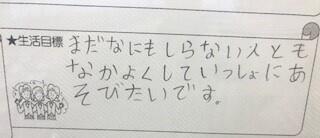 ★生活目標
まだなにもしらない人とも
なかよくしていっしょにあ
そびたいです。